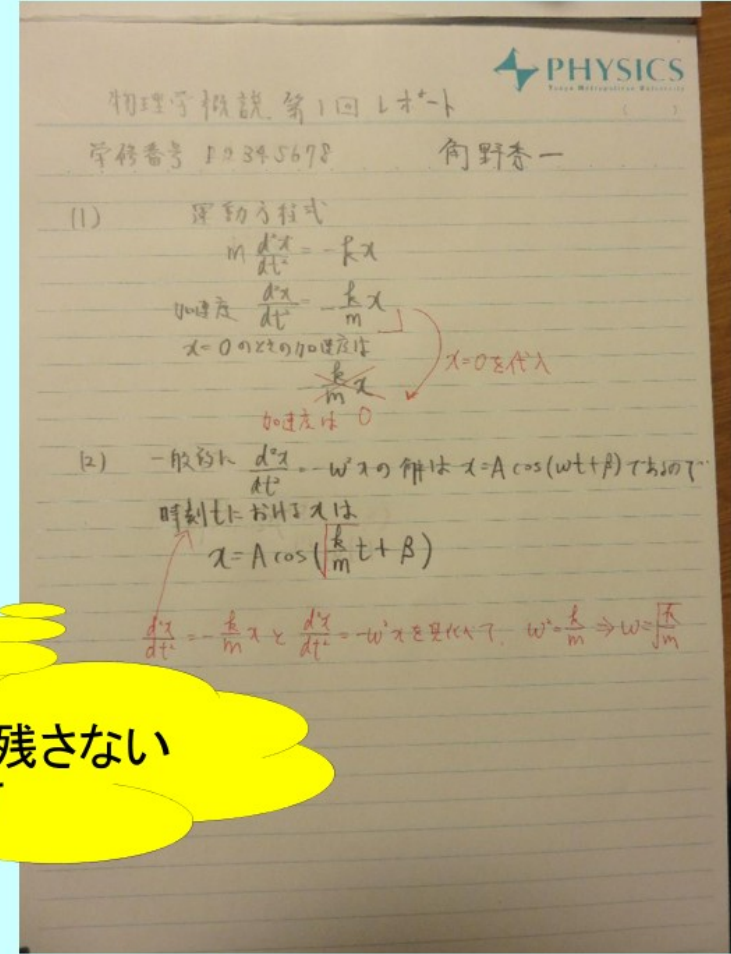 PHYSICS
Tokyo Metropolitan University
物理学概説 第1回 レポート
学修番号 12345678 角野秀一
(1) 運動方程式
m d²x/dt² = -kx
加速度 d²x/dt² = -k/m x
x=0のときの加速度は
x=0を代入
k/m x
加速度は 0
(2) 一般的に d²x/dt² = -ω²x の解は x=A cos(ωt+β) であるので
時刻tにおけるxは
x=A cos(√k/m t+β)
d²x/dt² = -k/m x と d²x/dt² = -ω²x を見比べて、ω²=k/m ⇒ ω=√k/m
残さない